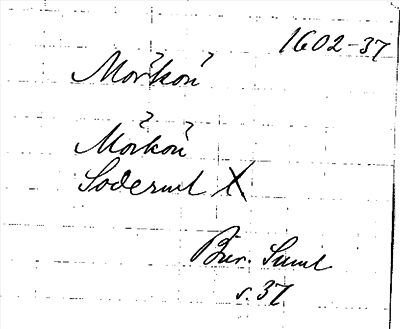 1602-37
Mörkön
Mörkön
Söderml X
Bur. Suml
s. 37